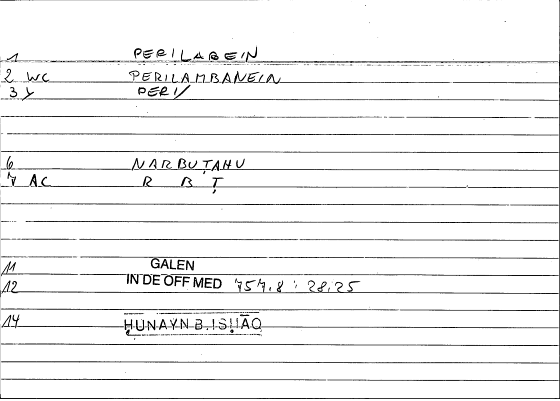 1 PERILABEIN
2 WC PERILAMBANEIN
3 Y PERI/
6 NARBUṬAHU
7 AC R B Ṭ
11 GALEN
12 IN DE OFF MED 757.8 : 28.25
14 ḤUNAYN B. ISḤĀQ